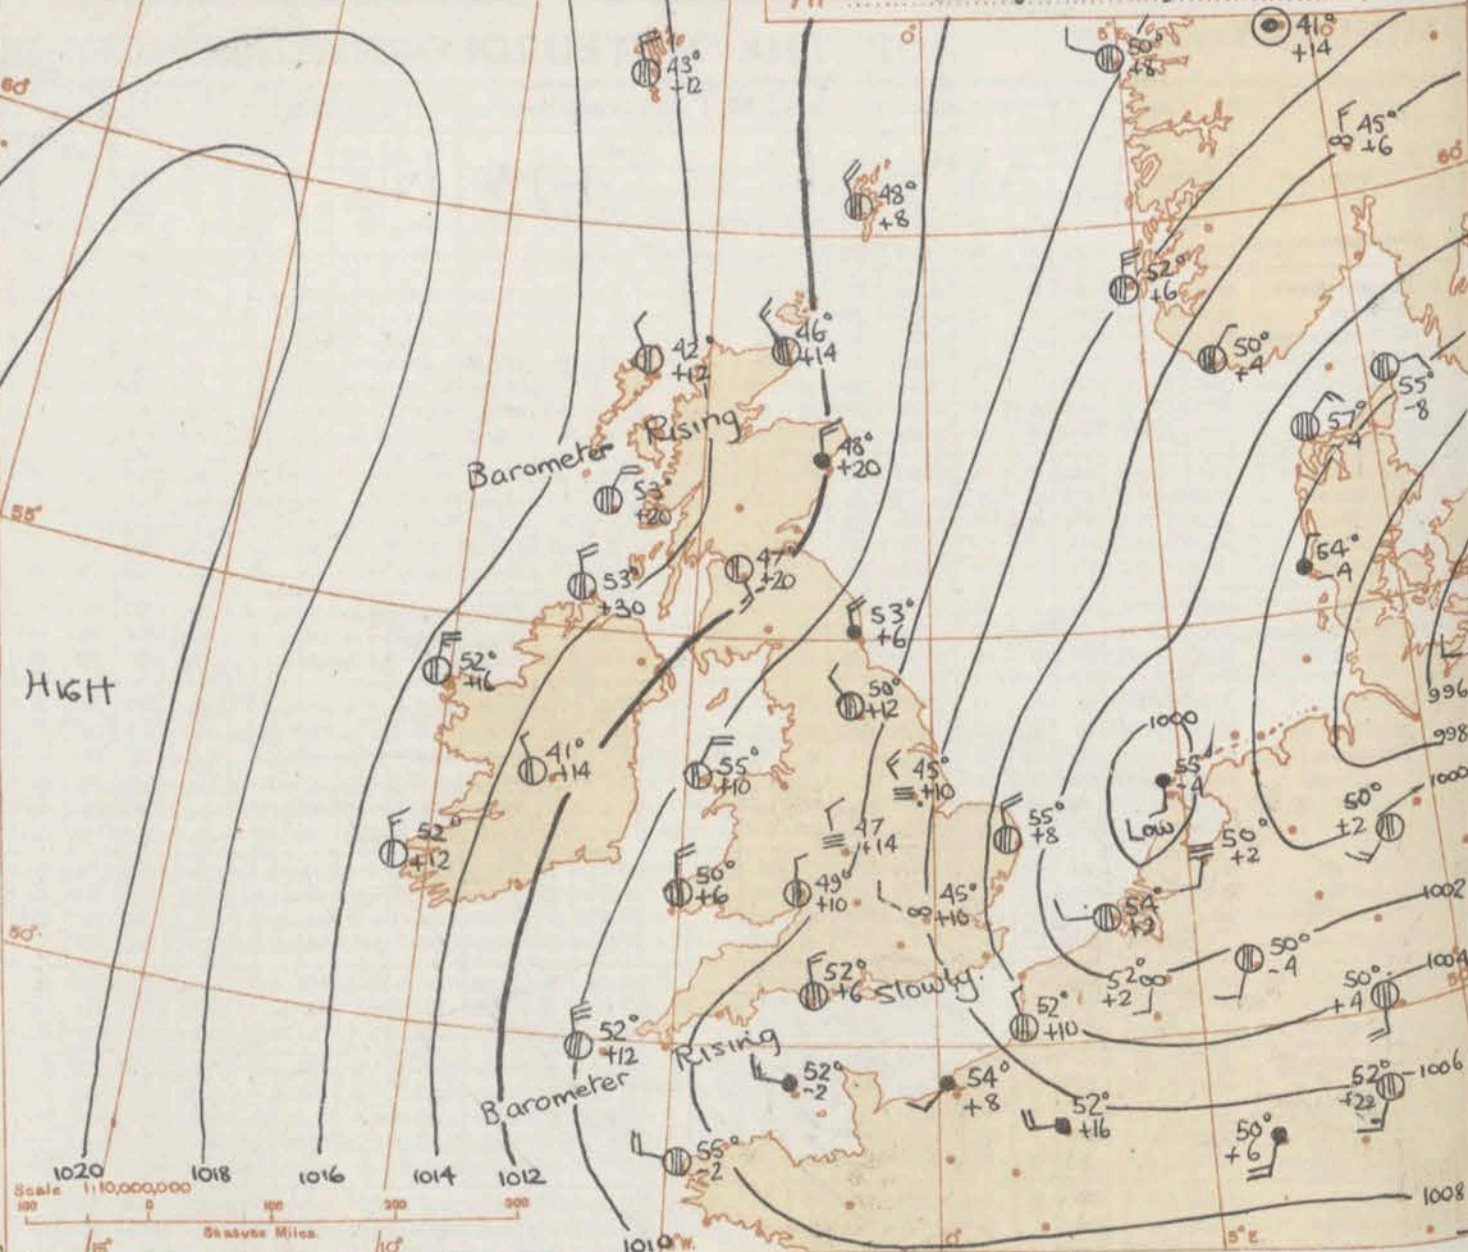 0°
5°
41°
+14
60°
43°
+12
50°
+8
45°
+6
60°
48°
+8
52°
+6
42°
+12
46°
+14
50°
+4
55°
-8
57°
-4
Barometer Rising
48°
+20
53°
+20
55°
47°
+20
54°
-4
53°
+30
53°
+6
52°
+16
50°
+12
HIGH
996
998
1000
1000
41°
+14
55°
+10
45°
+10
55°
-4
Low
50°
+2
52°
+12
47
+14
55°
+8
50°
+2
50°
+6
49°
+10
45°
+10
54°
+2
1002
50°
52°
+6
Slowly.
52°
+2
50°
-4
50°
+4
1004
52°
+12
52°
+10
Barometer Rising
52°
-2
54°
+8
52°
+16
52°
+22
1006
50°
+6
55°
-2
1020
1018
1016
1014
1012
1010
1008
Scale 1:10,000,000
100 0 100 200 300
Statute Miles.
15°
10°
°W.
0°
5°E.